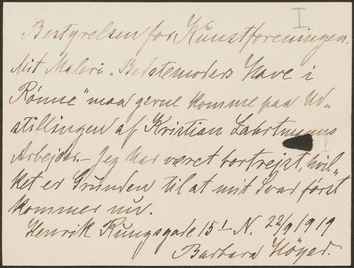 I
Bestyrelsen for Kunstforeningen.
Mit Maleri „Bedstemoders Have i
Rønne" maa gerne komme paa Ud-
stillingen af Kristian Zahrtmanns
Arbejder. – Jeg har været bortrejst, hvil-
ket er Grunden til at mit Svar først
kommer nu.
Henrik Rungsgade 15¹ N. 22/9 1919
Barbara Höyer.